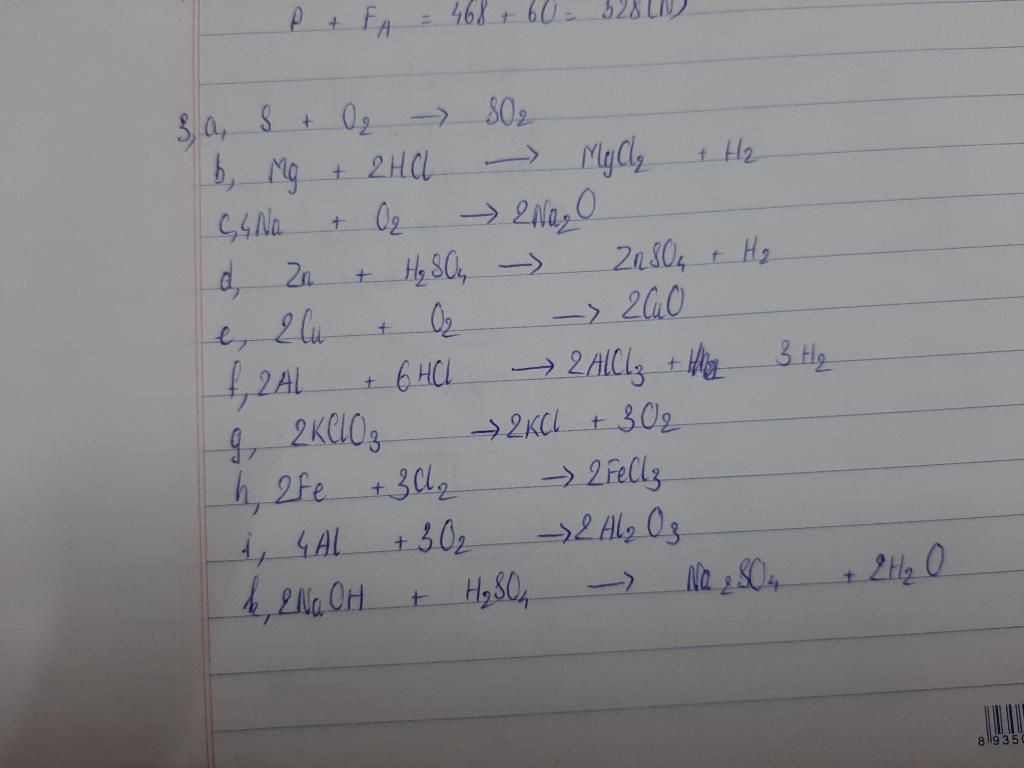 P + F_A = 468 + 60 = 528(N)
3, a, S + O₂ → SO₂
b, Mg + 2HCl → MgCl₂ + H₂
c, 4Na + O₂ → 2Na₂O
d, Zn + H₂SO₄ → ZnSO₄ + H₂
e, 2Cu + O₂ → 2CuO
f, 2Al + 6HCl → 2AlCl₃ + 3H₂
g, 2KClO₃ → 2KCl + 3O₂
h, 2Fe + 3Cl₂ → 2FeCl₃
i, 4Al + 3O₂ → 2Al₂O₃
k, 2NaOH + H₂SO₄ → Na₂SO₄ + 2H₂O
8 935